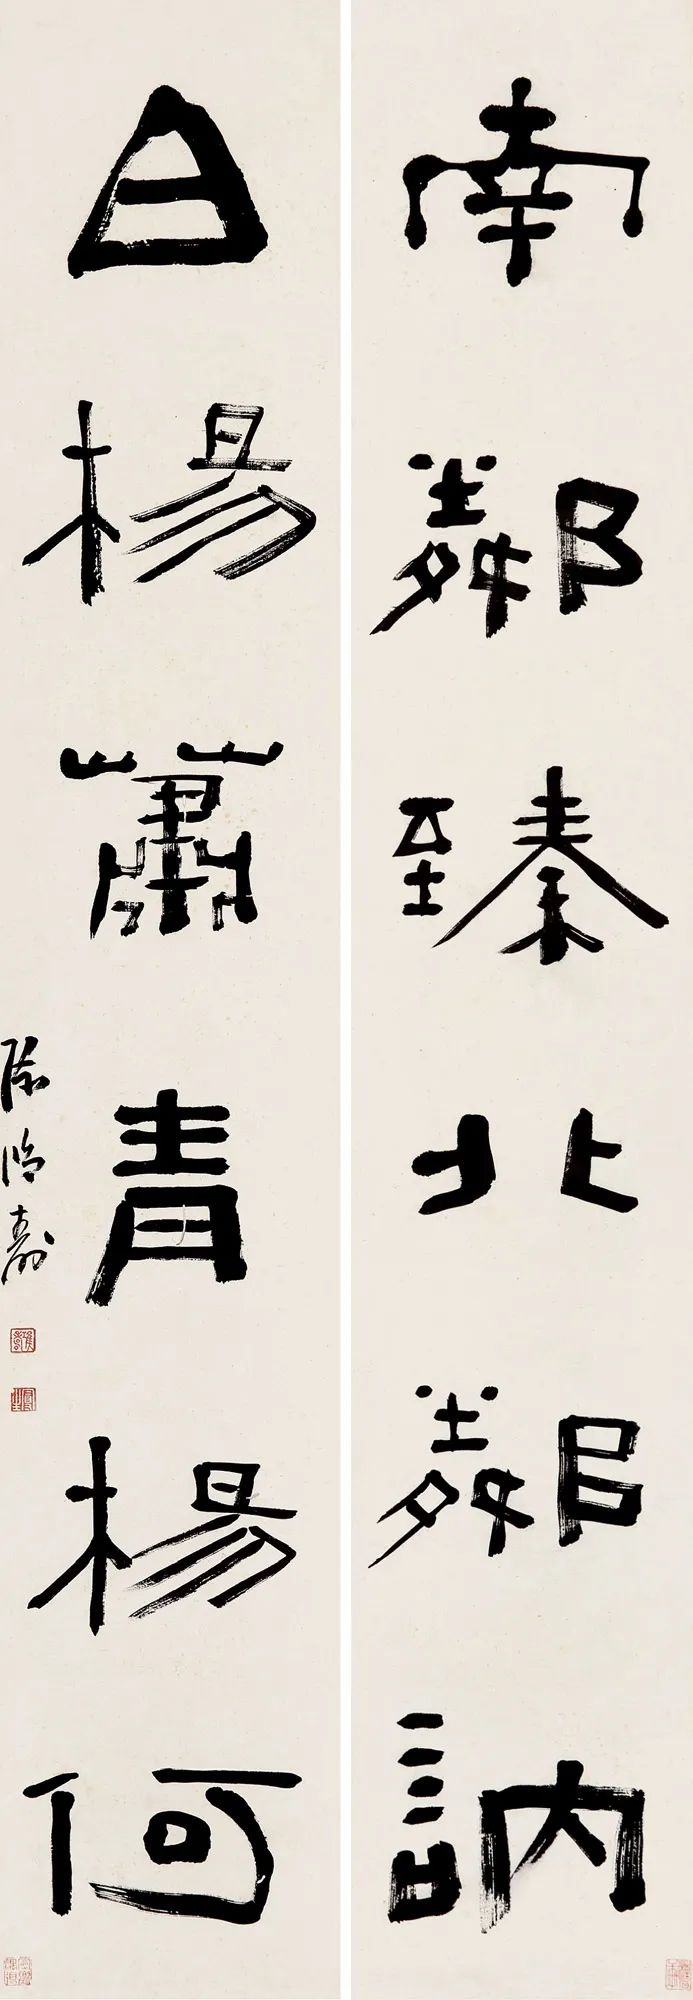 南鄰臻北鄰訥
白楊蕭青楊何
陳鴻壽